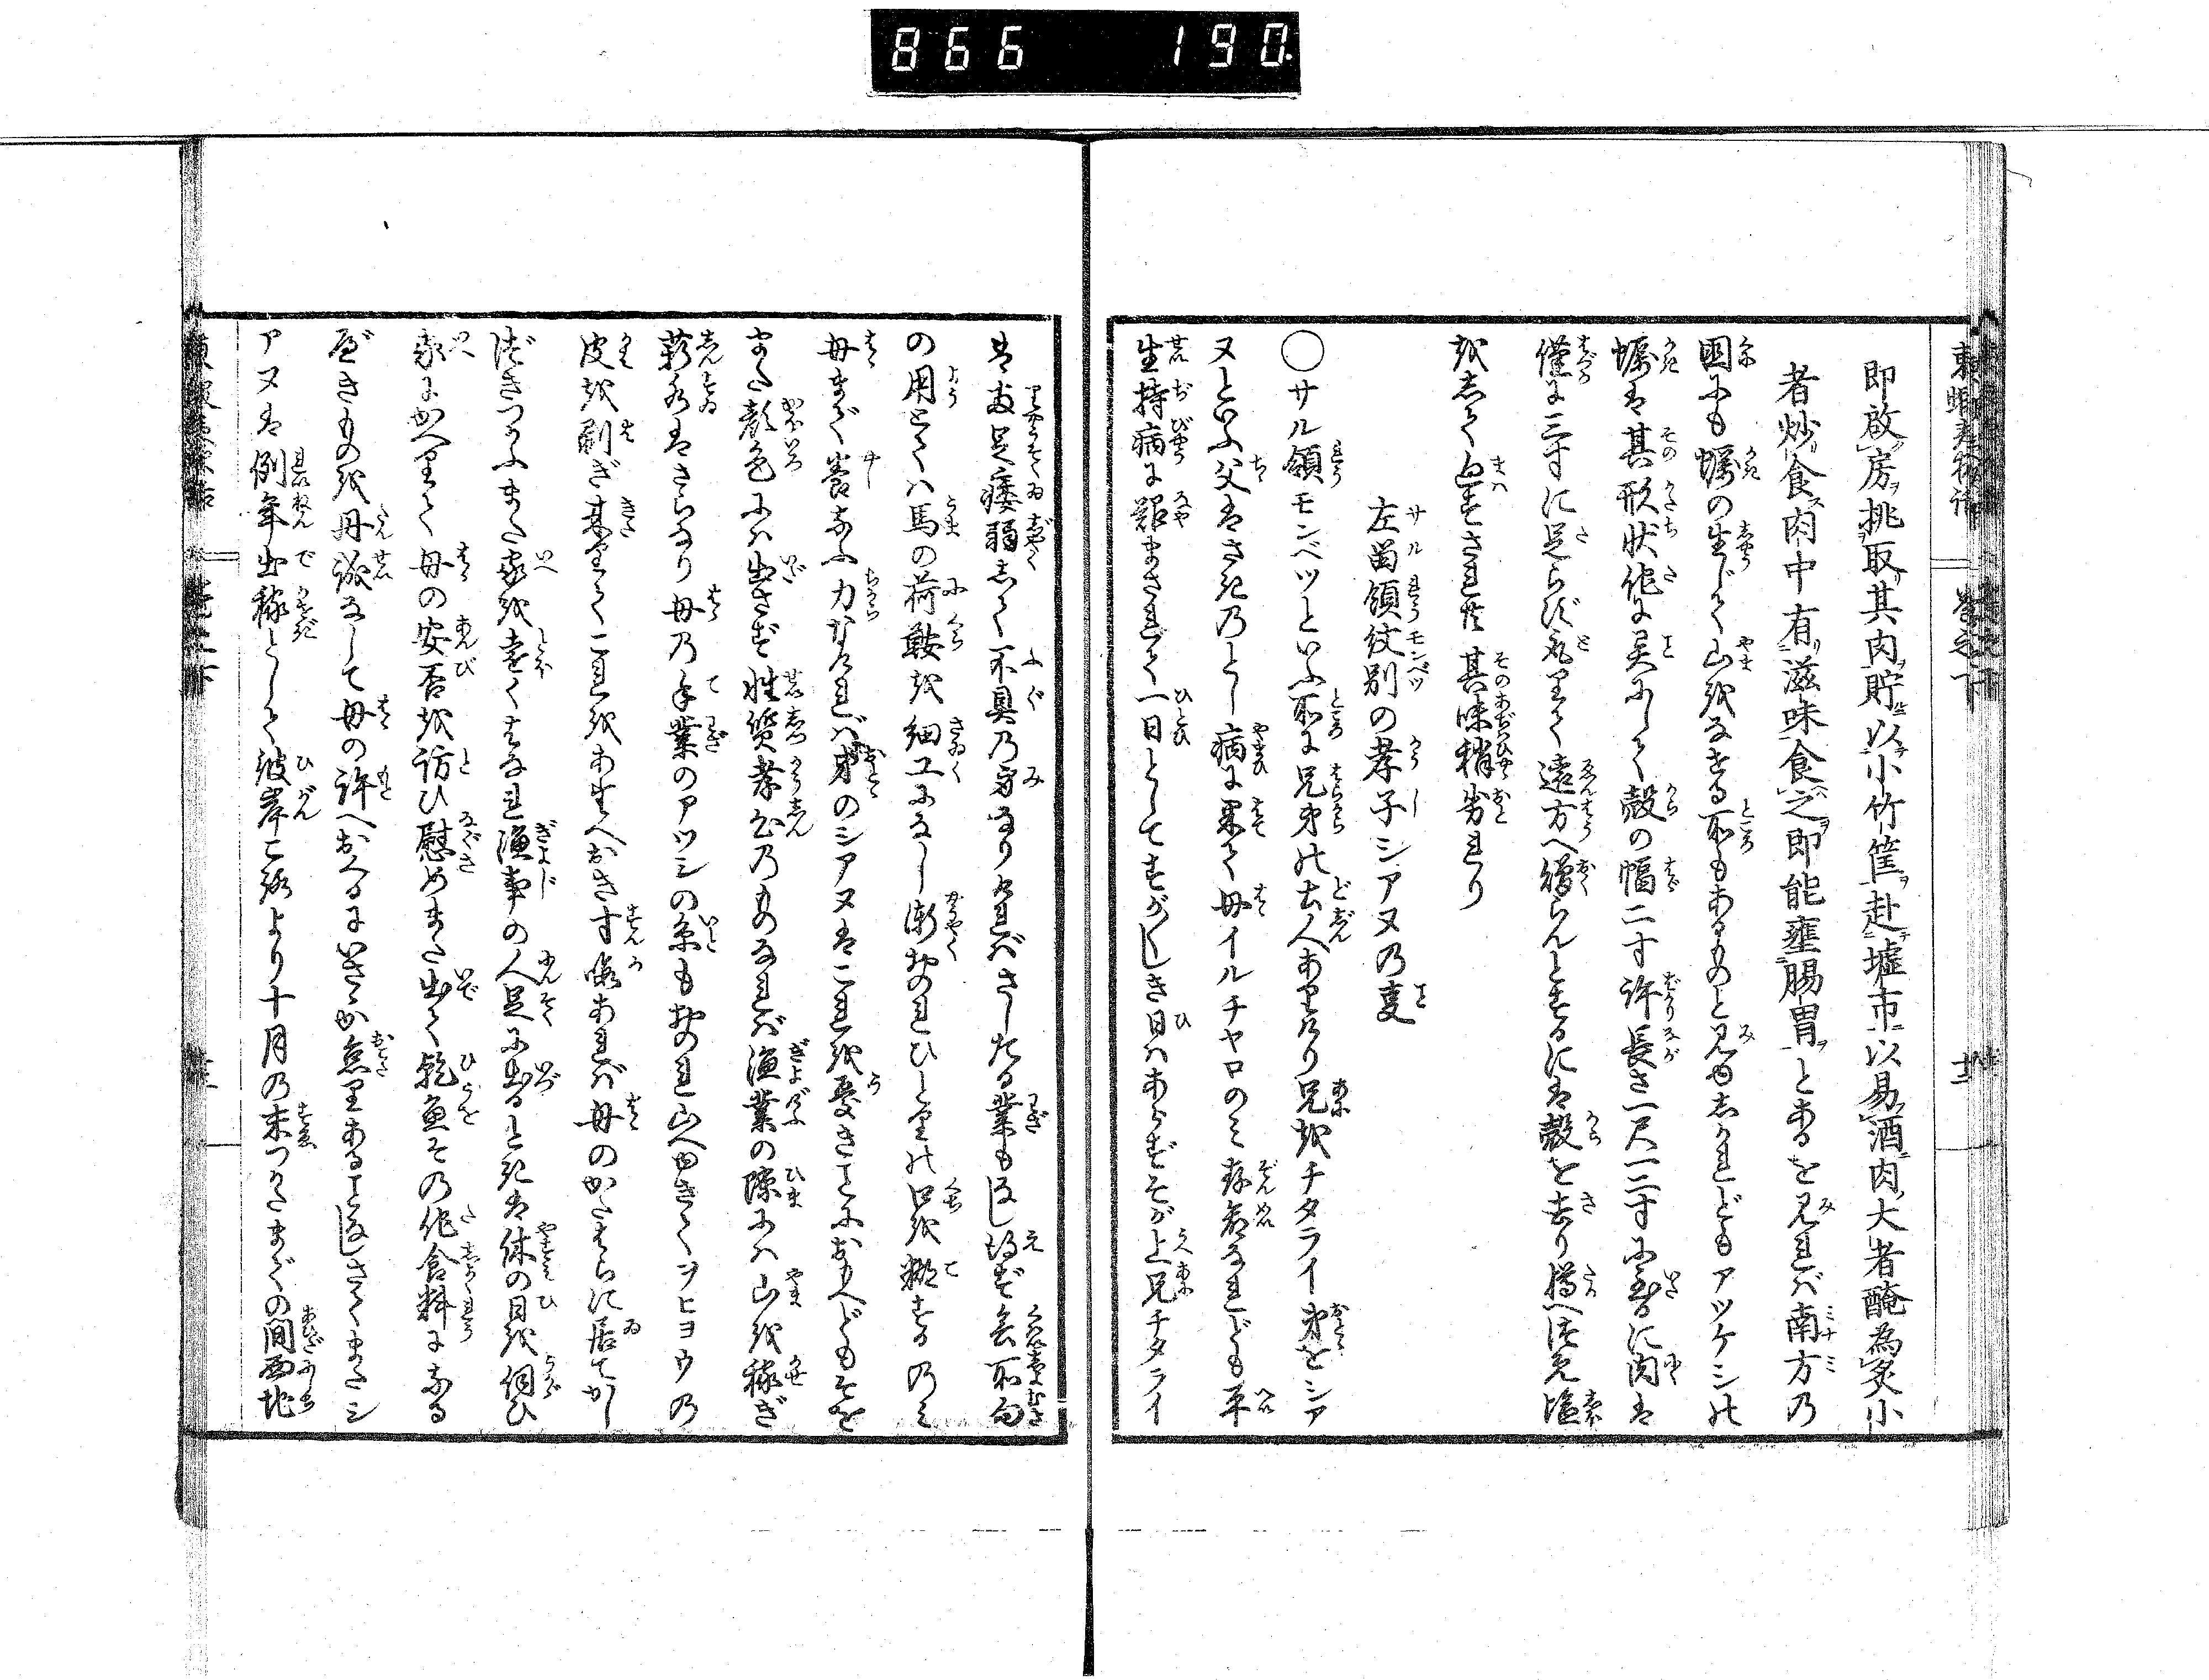 866 190.
東蝦夷物語 巻之下
即啟房挑取其肉貯以小竹筐赴墟市以易酒肉大者醃為炙小
者炒食肉中有滋味食之即能壅腸胃とあるを見れバ南方乃
国にも蠣の生じて山をなせる所もあるものと見ゆしかれどもアツケシの
蠣は其形状他に異にして殻の幅二寸許長さ一尺一二寸に至るに肉は
僅に三寸に足らず
遠方へ贈らんとするにハ殻を去り樽へ
其味稍劣れり
左留領紋別の孝子シアヌ乃事
〇サル領モンベツといふ所に兄弟の土人ありけり兄をチタライ弟をシア
ヌといふ父はさきのとし病に果て母イルチヤロのミ存命なれども平
生持病に罹まされて一日としてすがすがしき日ハあらずそが上兄チタライ
は両足痿弱して不具乃身なりけれバさしたる業も
の用とて八馬の荷鞍を細工になし漸おのれひとりの口を糊するのミ
母まで養ふ力なけれバ弟のシアヌはこれを憂きことにおもへどもそを
また顔色にハ出さず性質孝心乃ものなれバ漁業の隙にハ山を稼ぎ
薪水はさらなり母乃手業のアツシの糸もおのれ山へゆきてヲヒヨウの
皮を剥ぎ来りてこれをあたへおき寸暇あれバ母のかたはらに居てかし
づきつかふまた家を遠くはなれ漁事の人足に出ると
は休の日を伺ひ
家にかへりて母の安否を訪ひ慰めまた出て乾魚その他食料になる
べきものを丹誠なして母の許へおくるにいさゝか怠りあることなしさてまたシ
アヌは例年出稼として彼岸ころより十月の末つかたまでの間西地